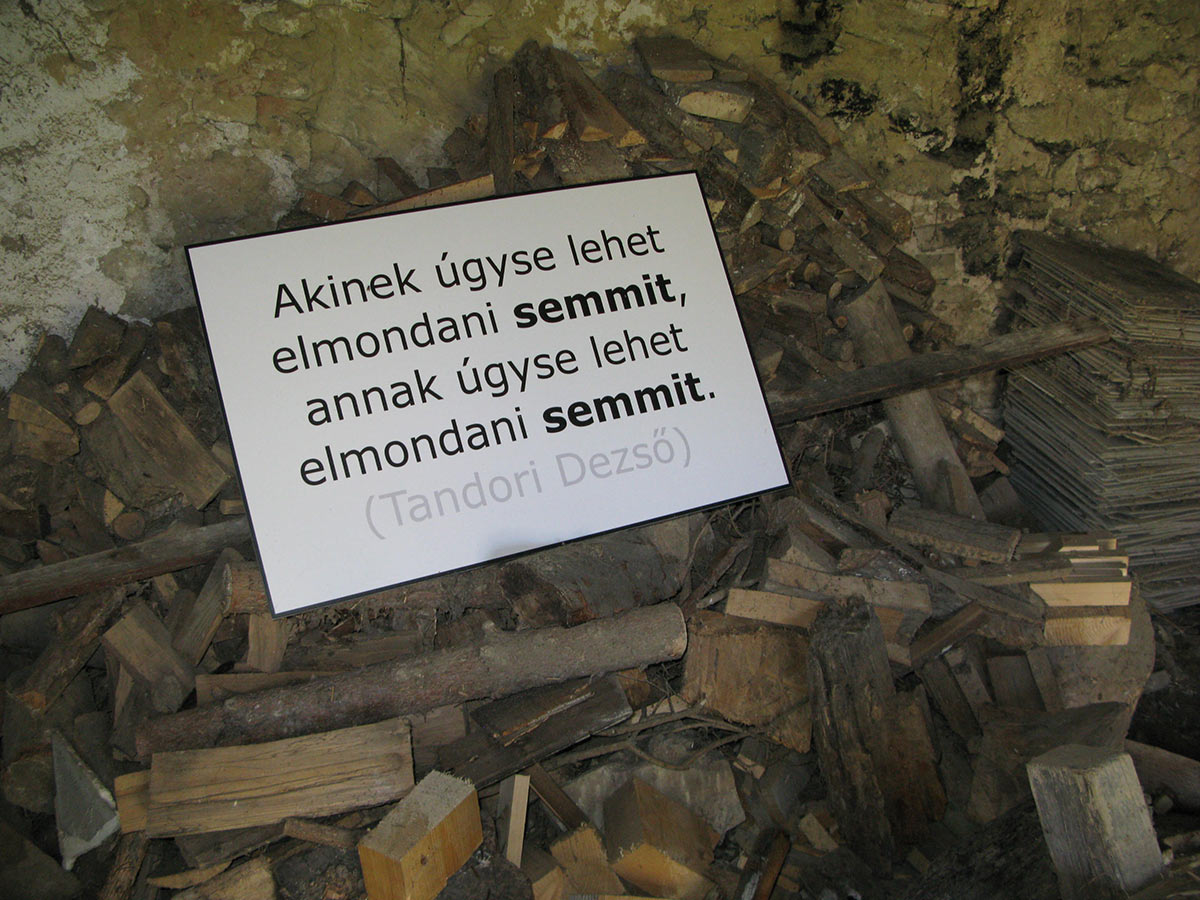 Akinek úgyse lehet
elmondani semmit,
annak úgyse lehet
elmondani semmit.
(Tandori Dezső)